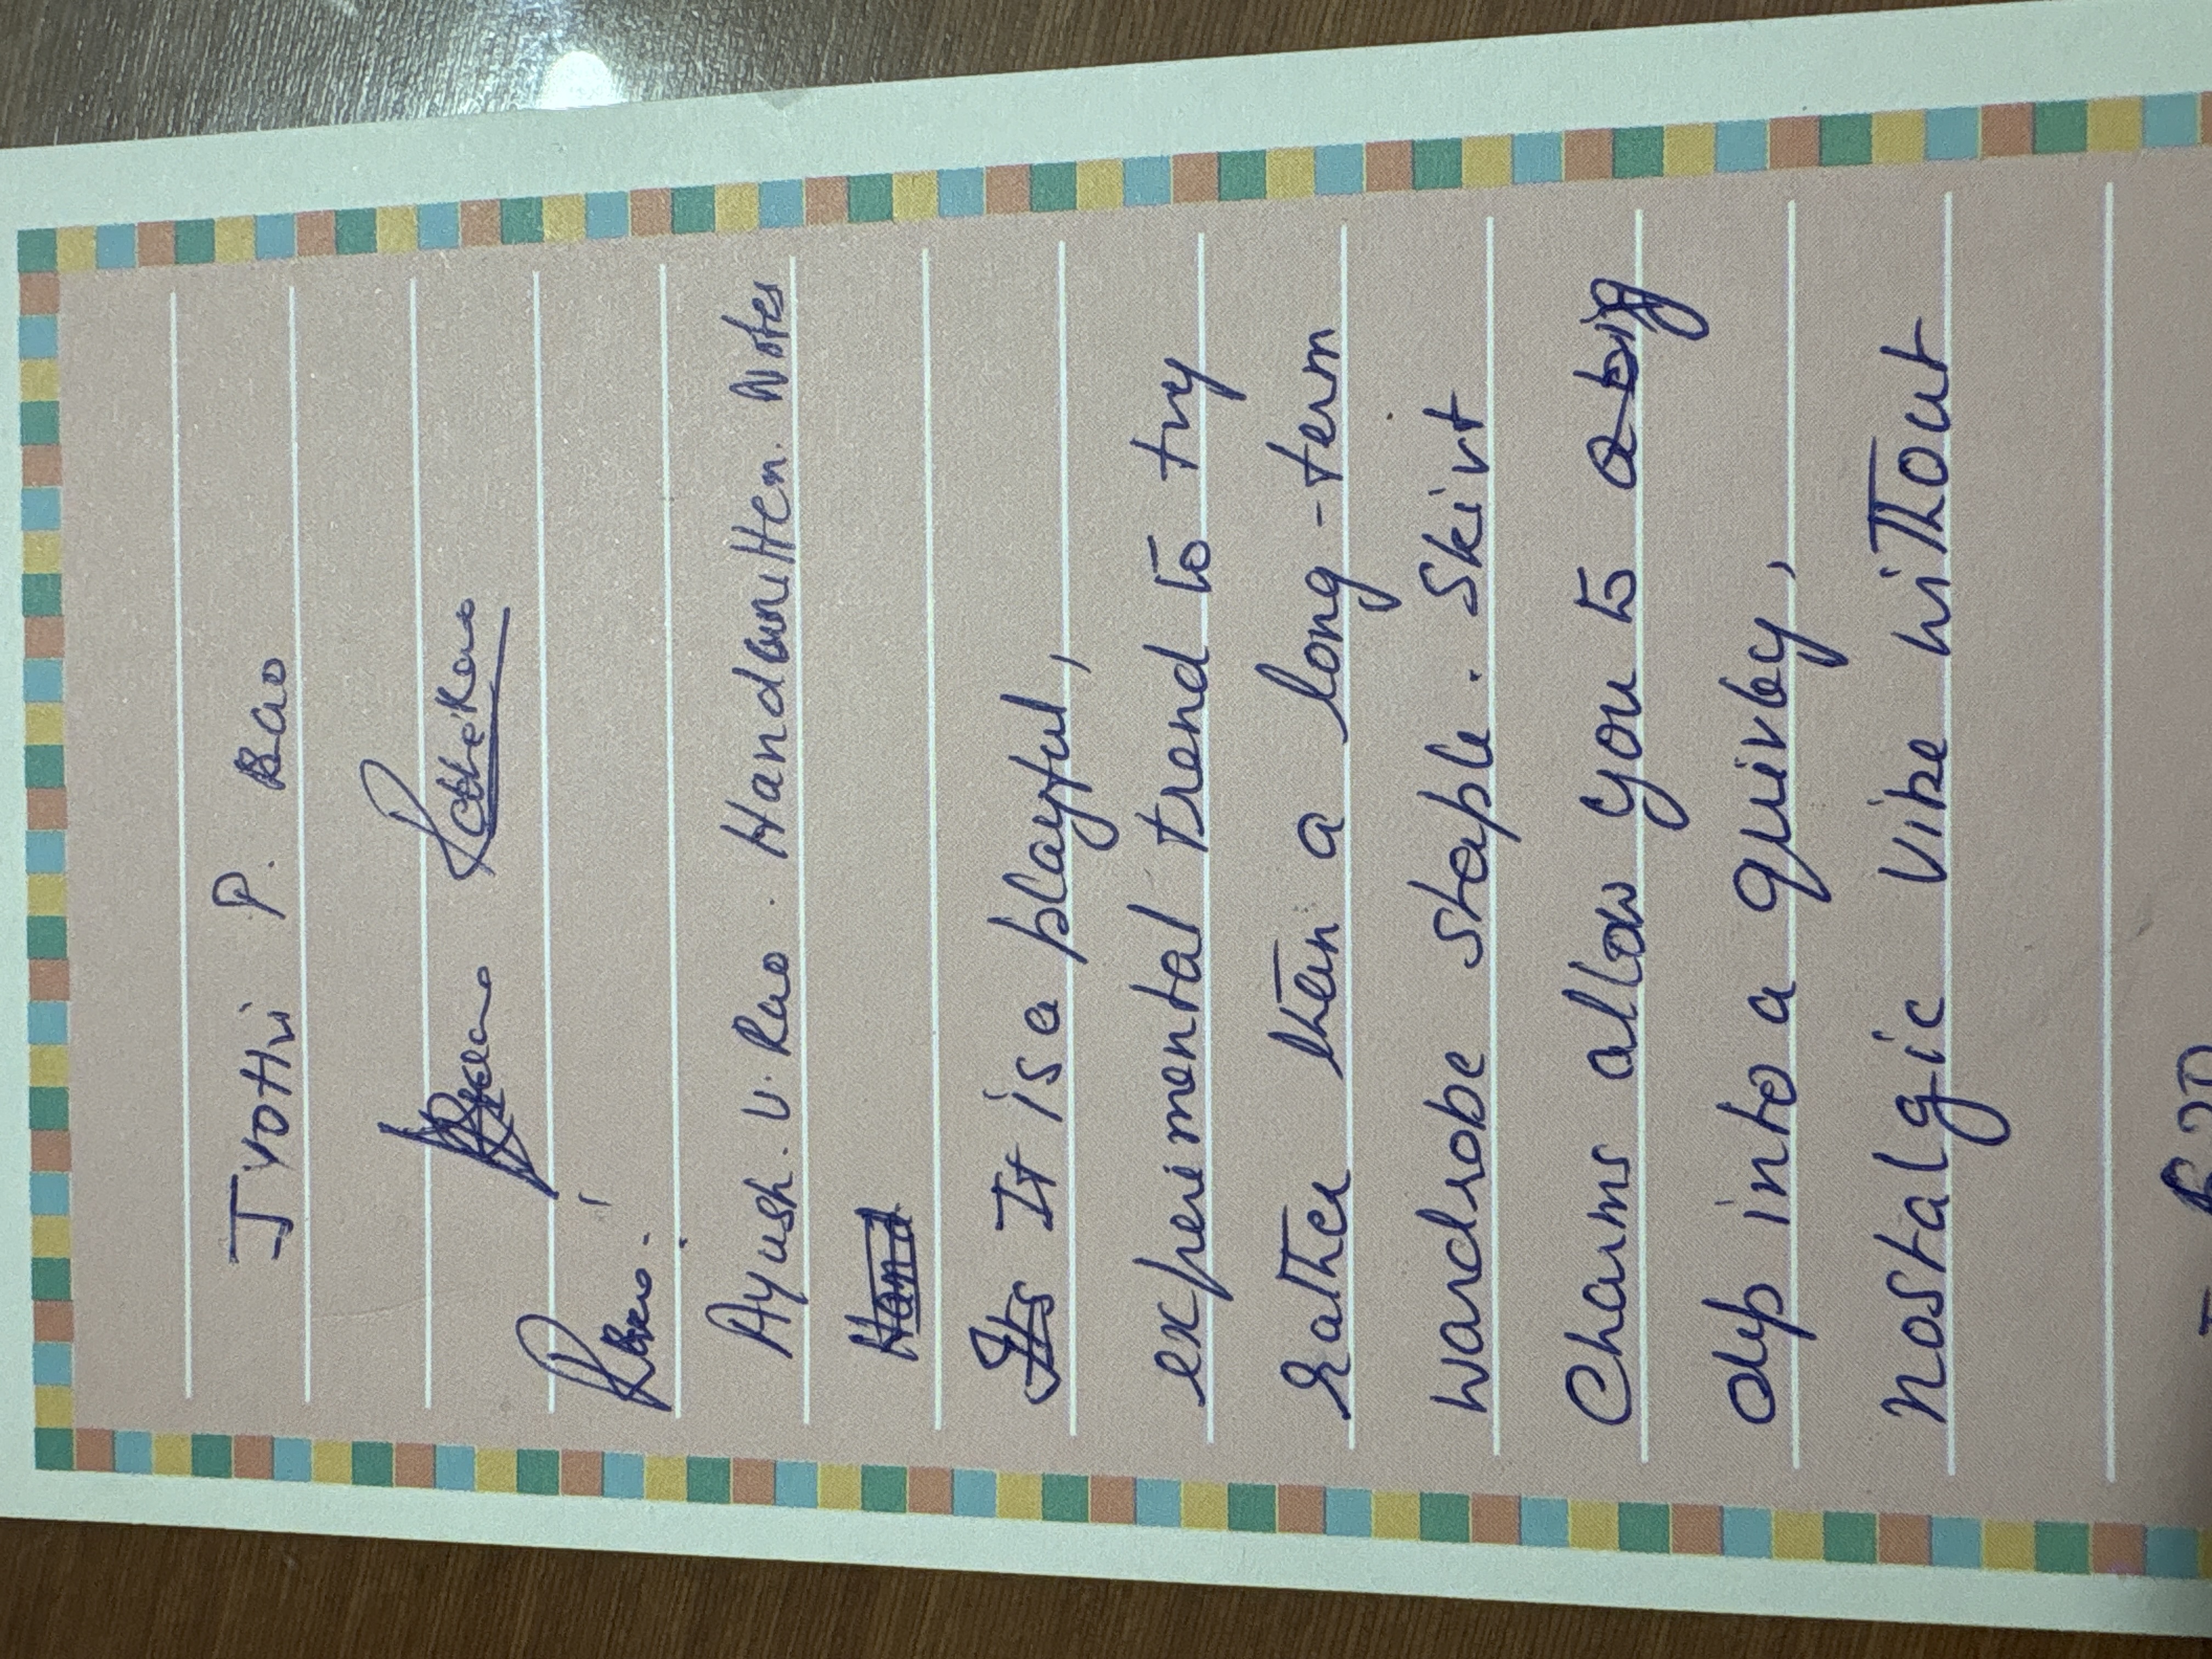 Jyothi P. Rao
Ayush. U. Rao. Handwritten. Notes
Hand
Its It is a playful,
experimental trend to try
rather than a long-term
wardrobe staple. Skirt
Charms allow you to a big
dip into a quirky,
nostalgic vibe without